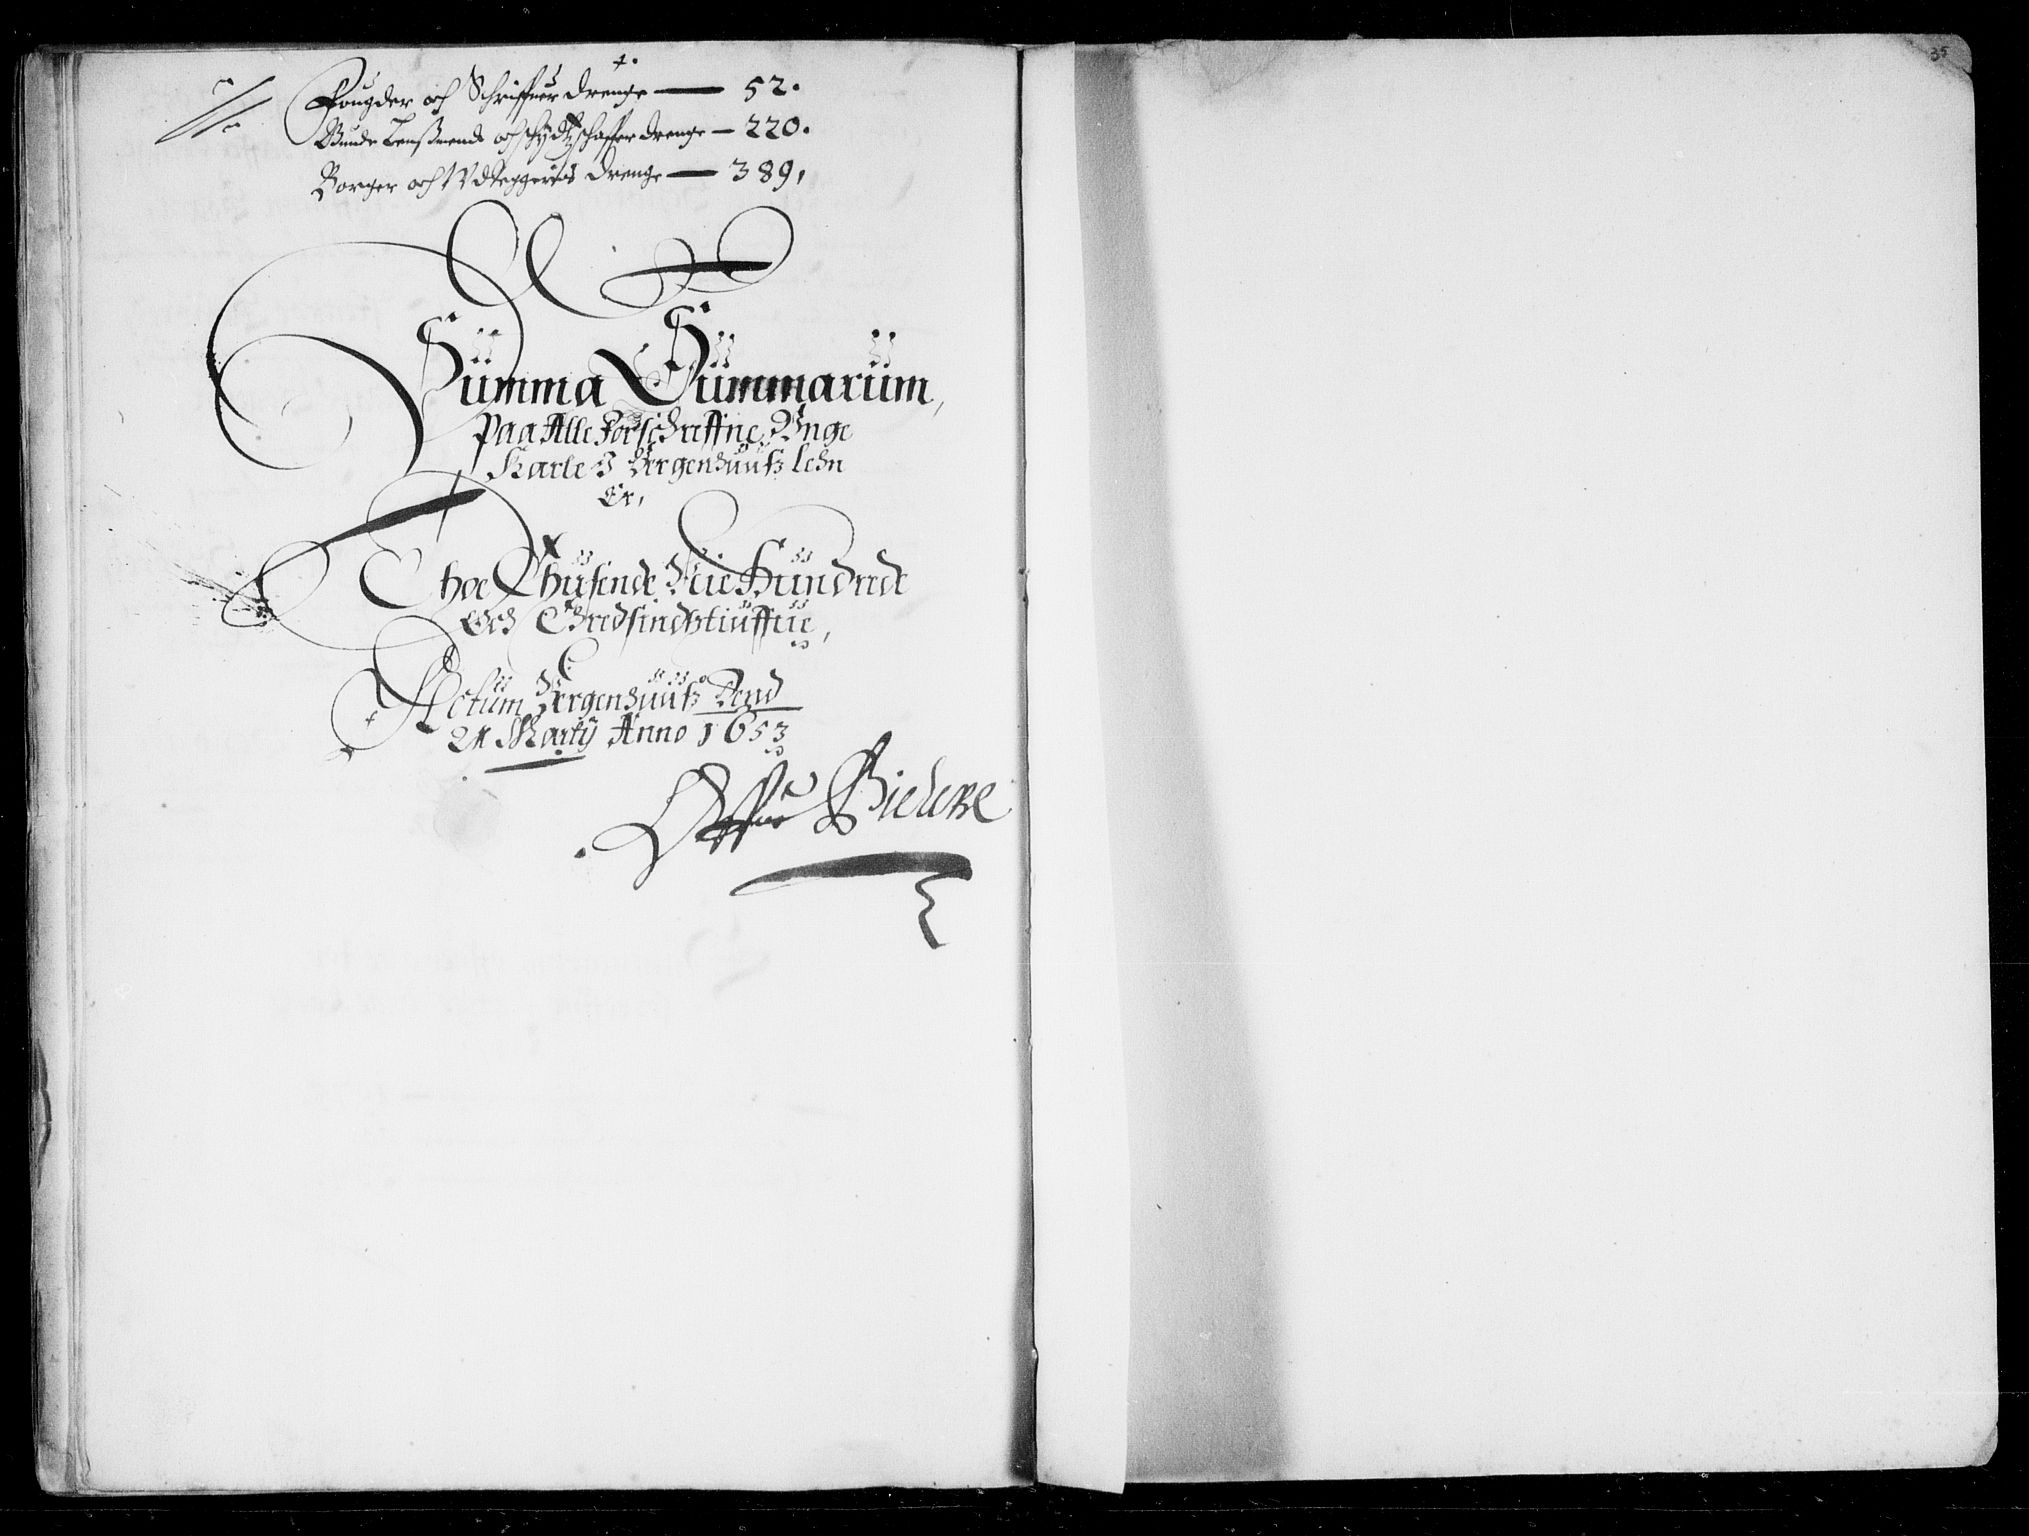 35
Fougder och Schriffuer drenge — 52.
Bunde Lenßmends och schydtzschaffer drenge — 220.
Borger och Vdleggeris drenge — 389,
Summa Summarum,
Paa Alle Forschreffne Vnge
Karle I Bergenhuuß lehn
Er,
Thoe Thusende Nie Hundrede
Och Tredsindstiuffue,
Actum Bergenhuuß Dend
21 Martij Anno 1653
Offue Bielcke